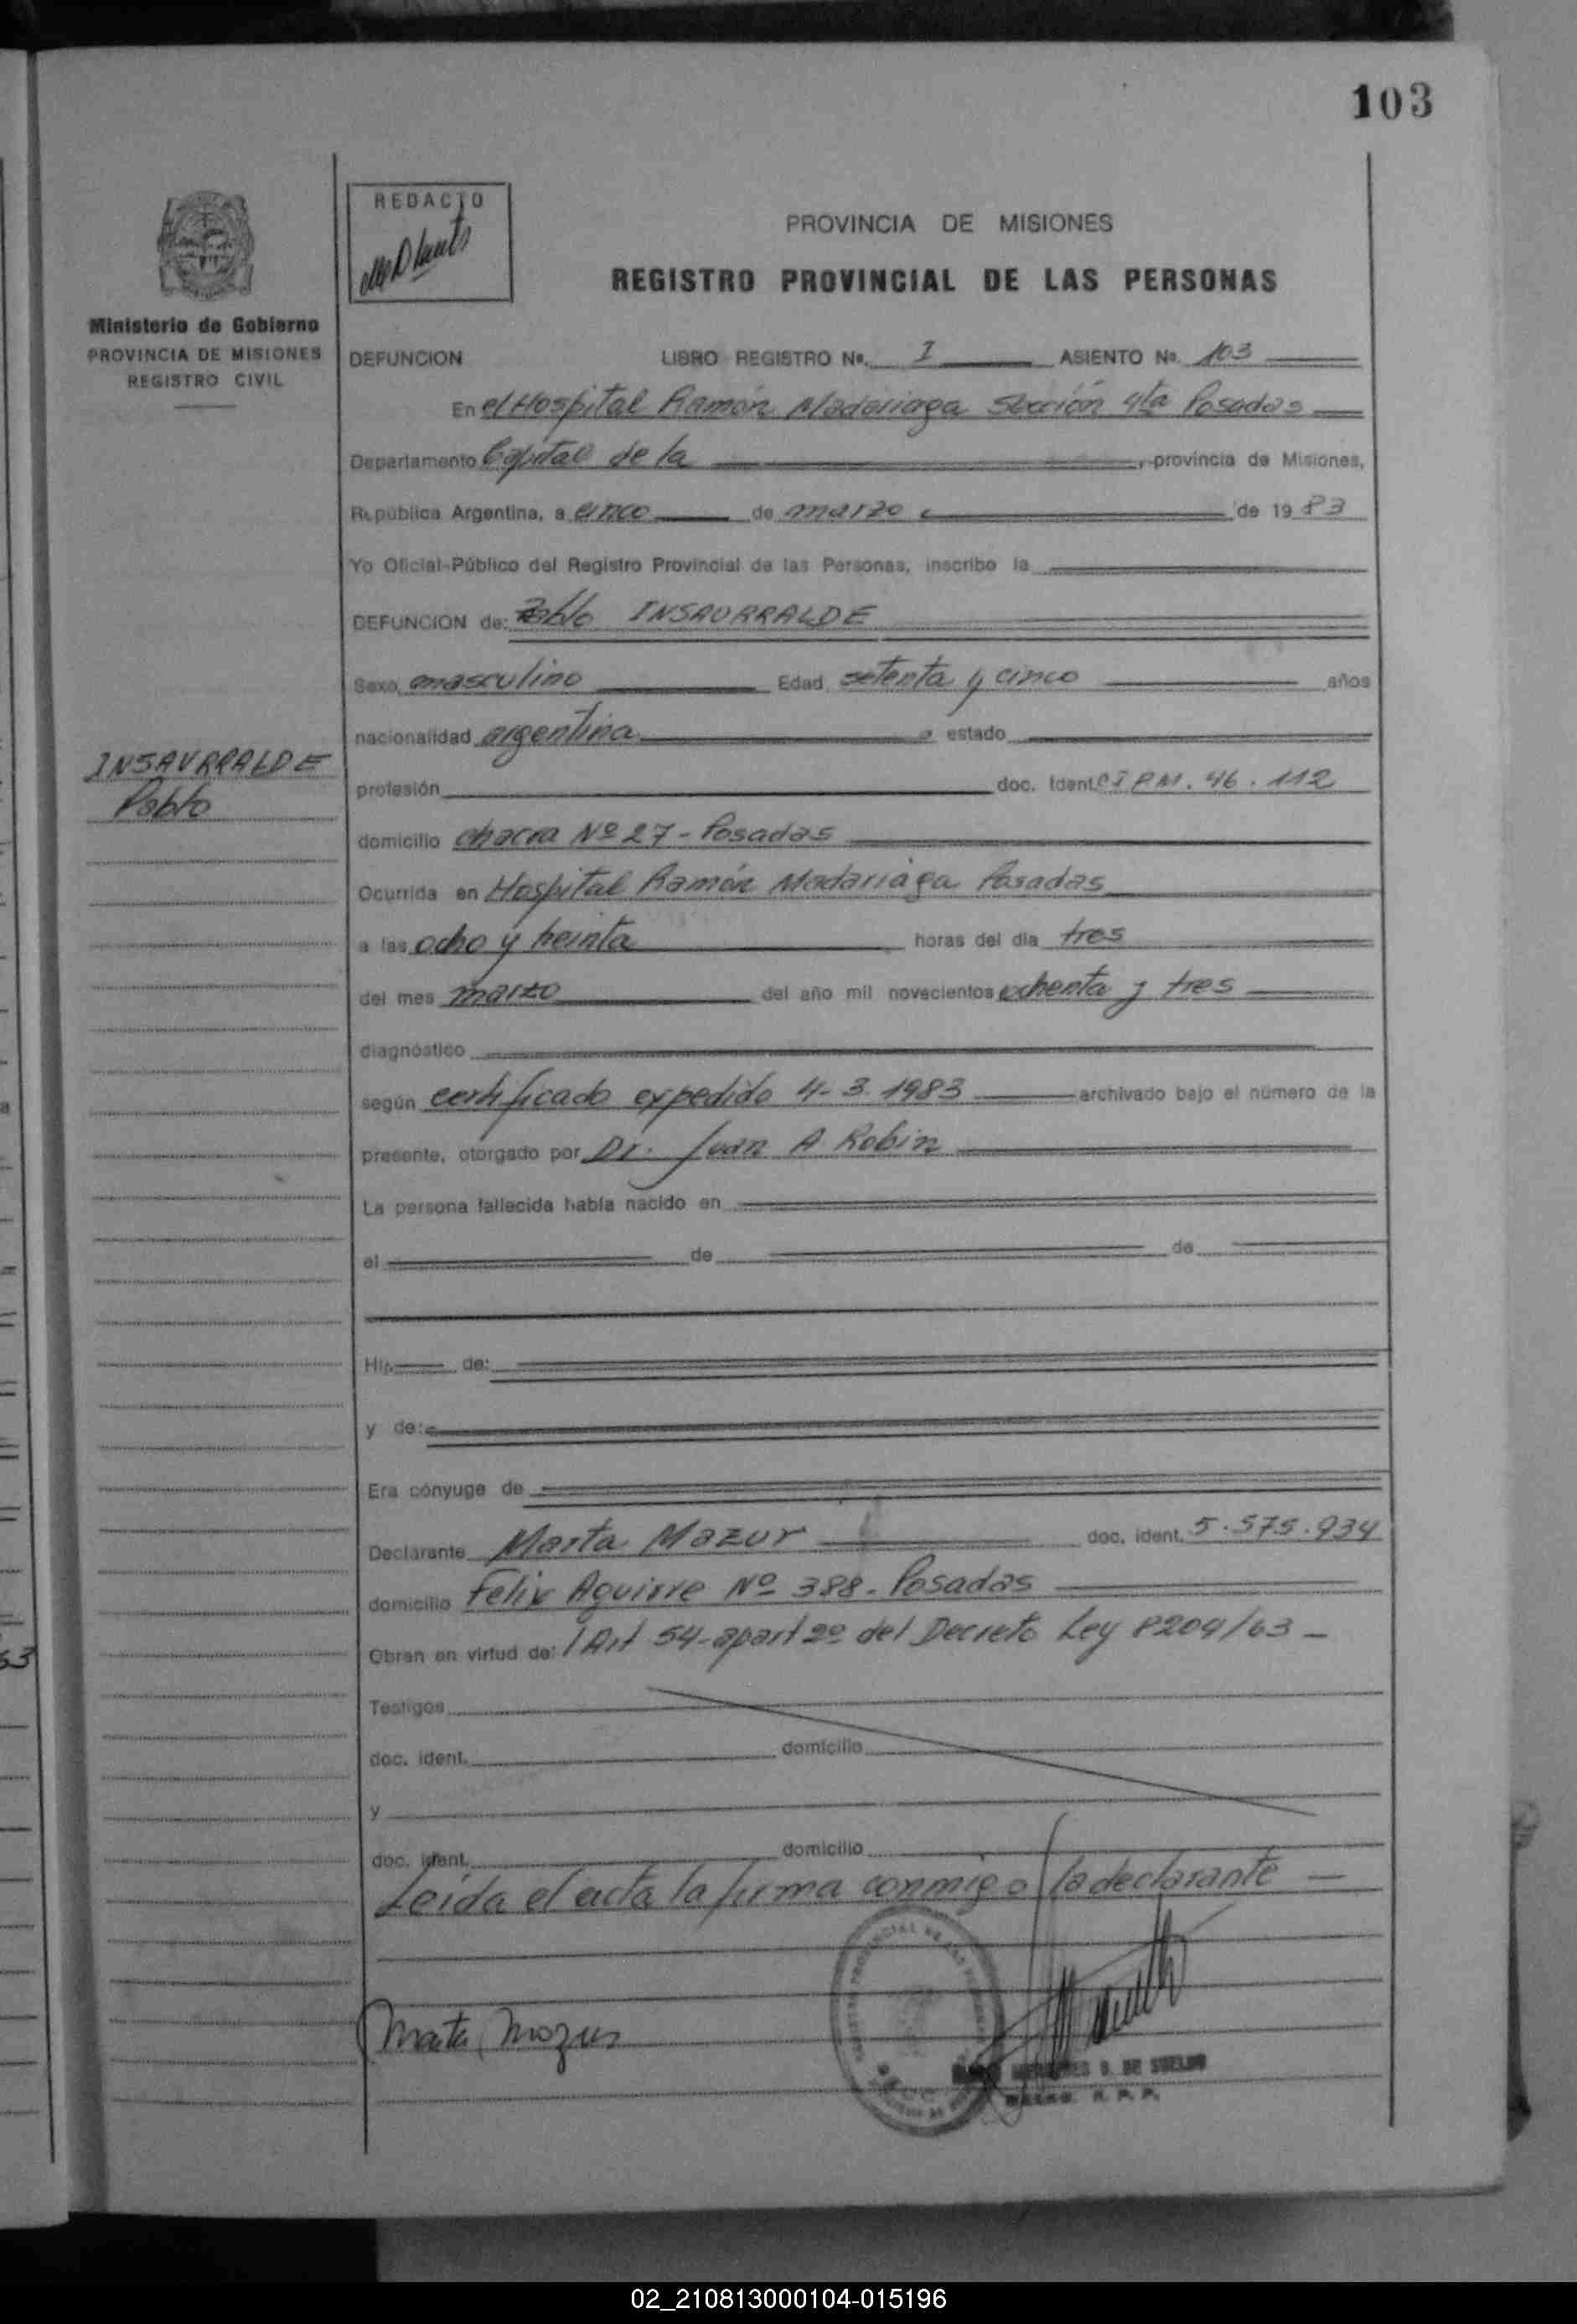 103
REDACTO
PROVINCIA DE MISIONES
REGISTRO PROVINCIAL DE LAS PERSONAS
Ministerio de Gobierno
PROVINCIA DE MISIONES
REGISTRO CIVIL
DEFUNCION LIBRO REGISTRO No. I ASIENTO No. 103
En el Hospital Ramón Madariaga Sección 4ta Posadas
Departamento Capital de la , provincia de Misiones,
República Argentina, a cinco de marzo de 1983
Yo Oficial-Público del Registro Provincial de las Personas, inscribo la
DEFUNCION de: Pablo INSAURRALDE
Sexo masculino Edad setenta y cinco años
nacionalidad argentina estado
INSAURRALDE
Pablo
profesión doc. Ident. CI PM. 46.112
domicilio chacra Nº 27 - Posadas
Ocurrida en Hospital Ramón Madariaga Posadas
a las ocho y treinta horas del día tres
del mes marzo del año mil novecientos ochenta y tres
diagnóstico
según certificado expedido 4-3-1983 archivado bajo el número de la
presente, otorgado por Dr. Juan A Robin
La persona fallecida había nacido en
el de de
Hij de:
y de:
Era cónyuge de
Declarante Marta Mazur doc. ident. 5.575.934
domicilio Felix Aguirre Nº 388 - Posadas
Obran en virtud de: l Art 54-apart 2º del Decreto Ley 8204/63 -
Testigos
doc. ident. domicilio
y
doc. ident. domicilio
Leida el acta la firma conmigo la declarante
Marta Mazur
D. DE SUELDO
R. P. P.
02_210813000104-015196